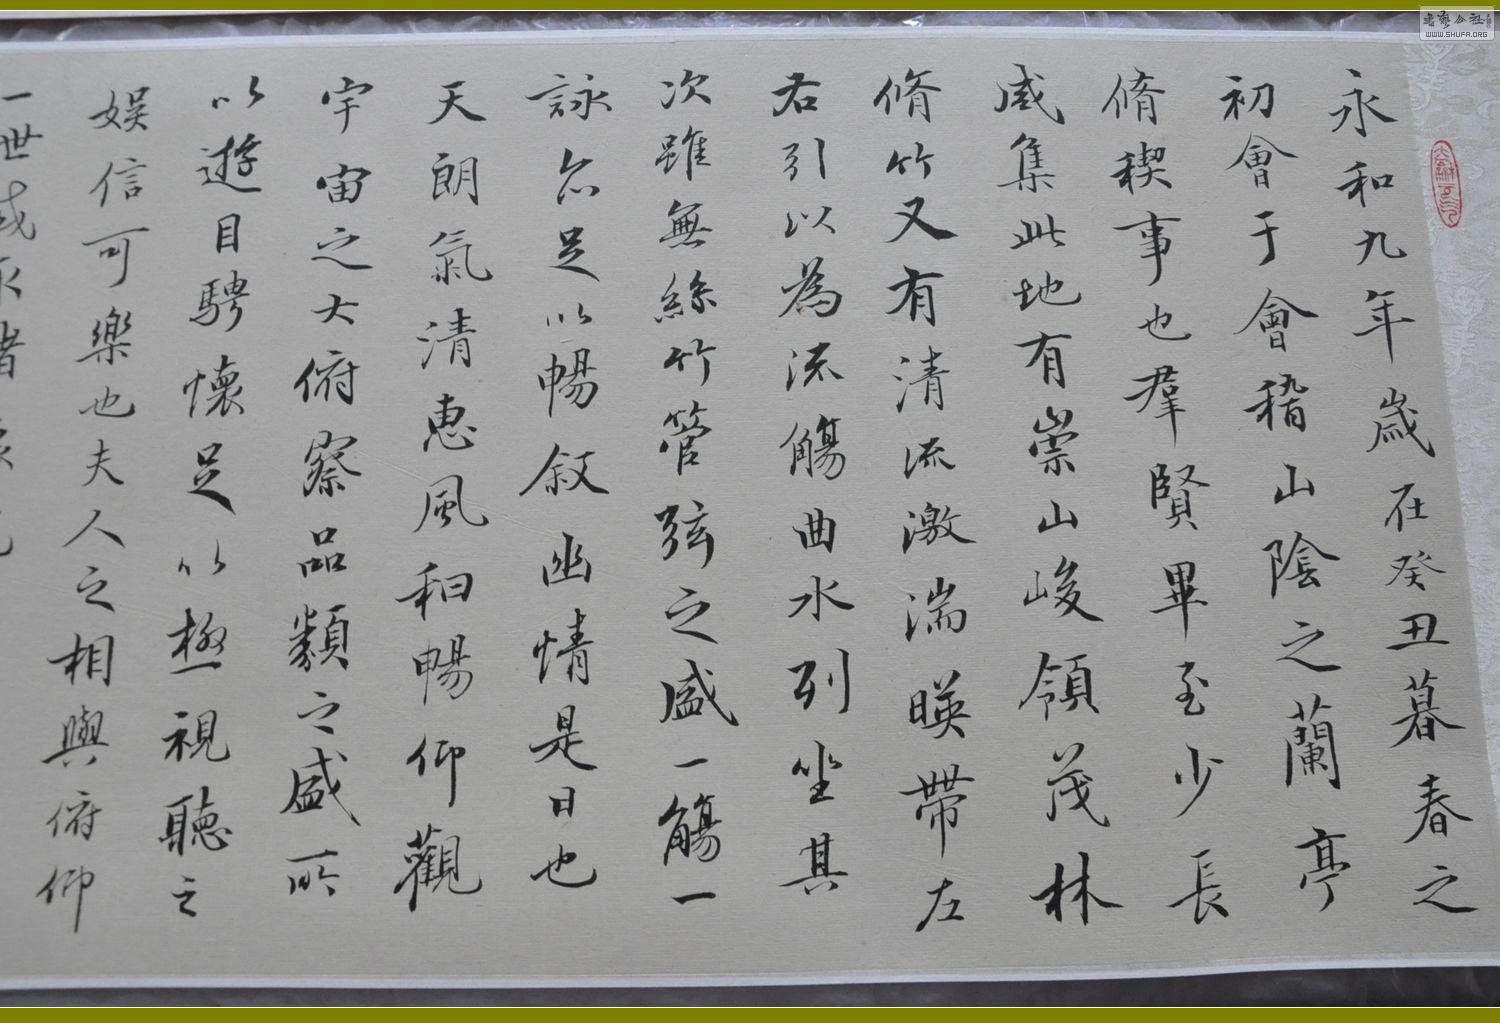 永和九年歲在癸丑暮春之
初會于會稽山陰之蘭亭
脩稧事也羣賢畢至少長
咸集此地有崇山峻領茂林
脩竹又有清流激湍暎帶左
右引以為流觴曲水列坐其
次雖無絲竹管弦之盛一觴一
詠亦足以暢叙幽情是日也
天朗氣清惠風和暢仰觀
宇宙之大俯察品類之盛所
以遊目騁懷足以極視聽之
娛信可樂也夫人之相與俯仰
一世或取諸
WWW.SHUFA.ORG